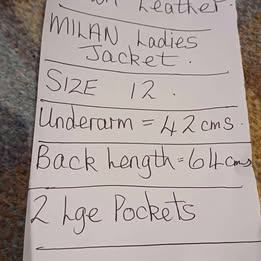 Leather.
MILAN Ladies
Jacket.
SIZE 12.
Underarm = 42 cms.
Back Length = 64 cms
2 Lge Pockets